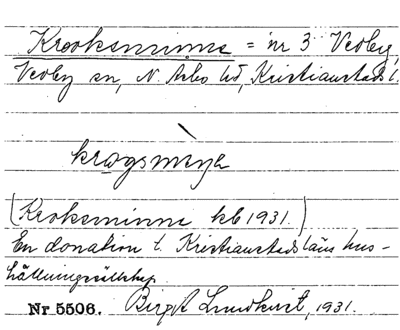 Krooksminne = nr 3 Verby,
Verby sn, N. Åsbo hd, Kristianstads l.
krogsmịnə
(Kroksminne kb 1931.)
En donation t. Kristianstads läns hus-
hållningssällskap
Nr 5506. Birgit Lundkvist, 1931.